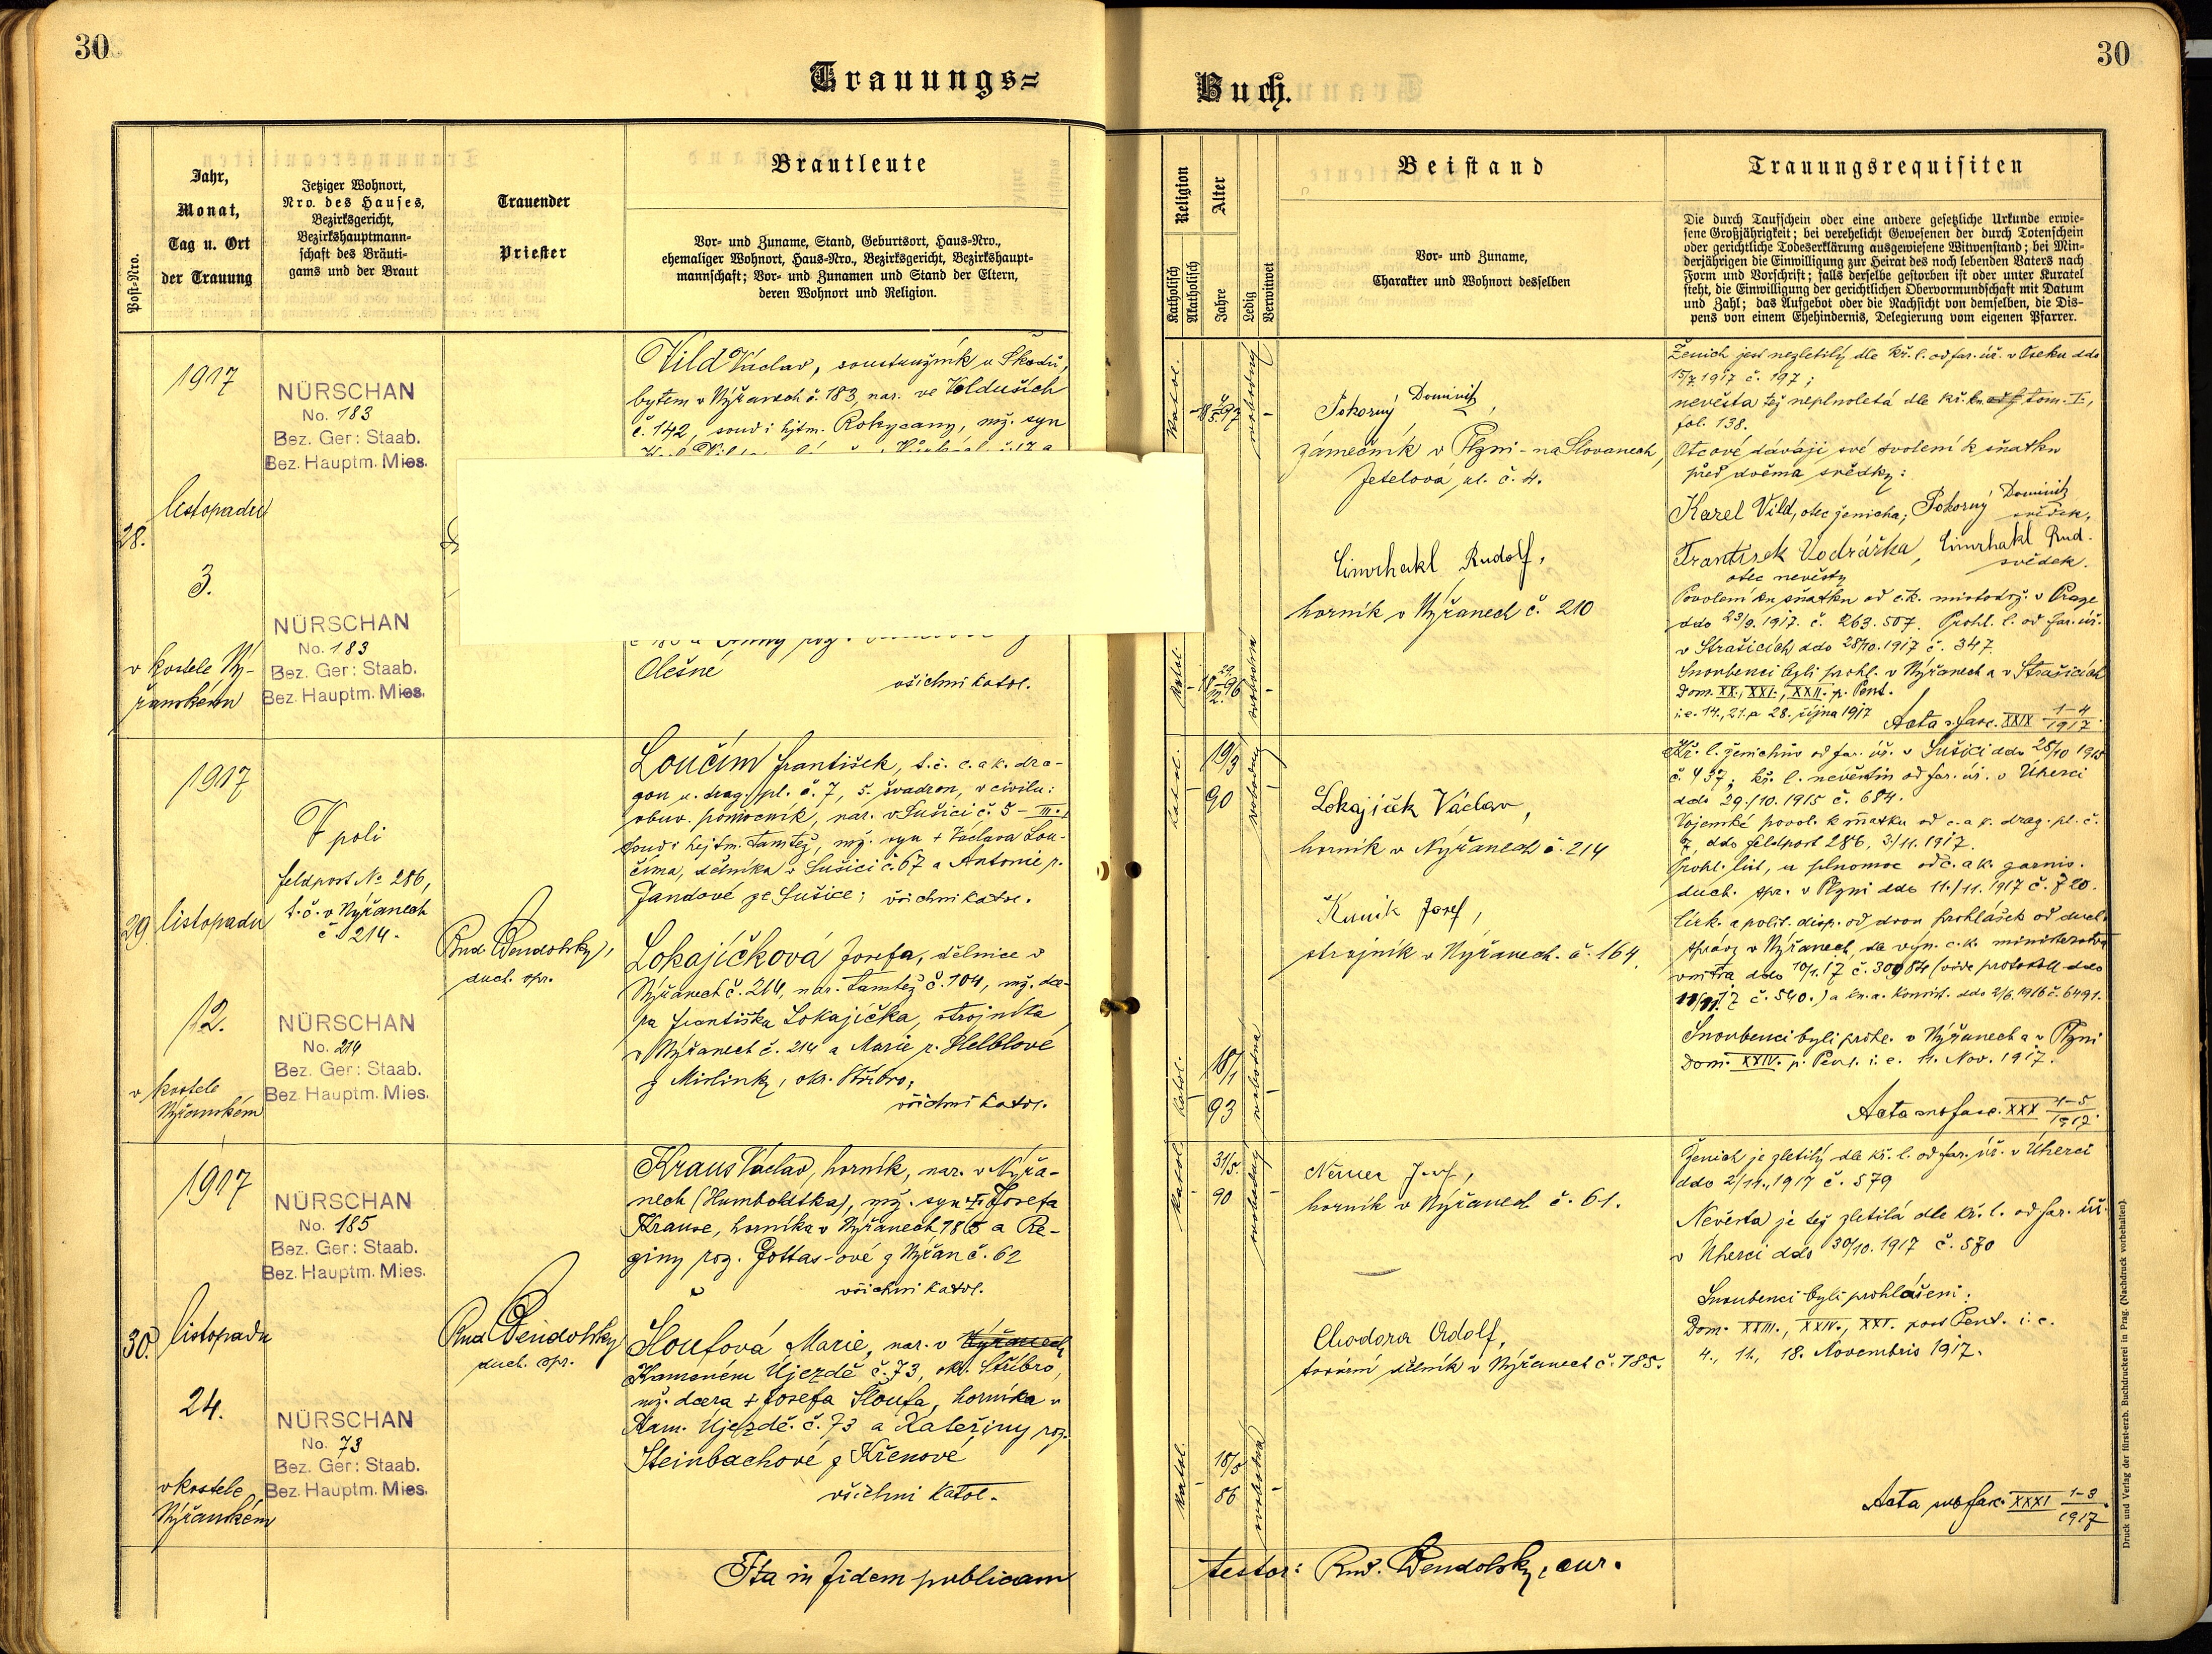 30
30
Trauungs=
Buch.
Post-Nro.
Jahr,
Monat,
Tag u. Ort
der Trauung
Jetziger Wohnort,
Nro. des Hauses,
Bezirksgericht,
Bezirkshauptmann-
schaft des Bräuti-
gams und der Braut
Trauender
Priester
Brautleute
Vor- und Zuname, Stand, Geburtsort, Haus-Nro.,
ehemaliger Wohnort, Haus-Nro., Bezirksgericht, Bezirkshaupt-
mannschaft; Vor- und Zunamen und Stand der Eltern,
deren Wohnort und Religion.
Religion
Katholisch
Akatholisch
Alter
Jahre
Ledig
Verwitwet
Beistand
Vor- und Zuname,
Charakter und Wohnort desselben
Trauungsrequisiten
Die durch Taufschein oder eine andere gesetzliche Urkunde erwie-
sene Großjährigkeit; bei verehelicht Gewesenen der durch Totenschein
oder gerichtliche Todeserklärung ausgewiesene Witwenstand; bei Min-
derjährigen die Einwilligung zur Heirat des noch lebenden Vaters nach
Form und Vorschrift; falls derselbe gestorben ist oder unter Kuratel
steht, die Einwilligung der gerichtlichen Obervormundschaft mit Datum
und Zahl; das Aufgebot oder die Nachsicht von demselben, die Dis-
pens von einem Ehehindernis, Delegierung vom eigenen Pfarrer.
28.
1917
listopadu
3.
v kostele Ný-
řanském
NÜRSCHAN
No. 183
Bez. Ger: Staab.
Bez. Hauptm. Mies.
NÜRSCHAN
No. 183
Bez. Ger: Staab.
Bez. Hauptm. Mies.
Vild Václav, soustružník u Škodů,
bytem v Nýřanech č. 183, nar. ve Volduších
č. 142, soud i hjtm. Rokycany, mž. syn
Olešné
všichni katol.
katol.
svobodný
katol.
svobodná
Pokorný Dominik,
zámečník v Plzni - na Slovanech,
Jetelová ul. č. 4.
Cinrhakl Rudolf,
horník v Nýřanech č. 210
Ženich jest nezletilý dle kř. l. od far. úř. v Oseku ddo
15/7. 1917 č. 197;
nevěsta též neplnoletá dle kř. kn. tom. I.,
fol. 138.
Otcové dávají své svolení k sňatku
před dvěma svědky:
Karel Vild, otec ženicha; Pokorný Dominik svědek,
František Vodrážka, Cinrhakl Rud.
otec nevěsty svědek.
Povolení ku sňatku od c.k. místodrž. v Praze
ddo 23/9. 1917. č. 263.507. Prohl. l. od far. úř.
v Strašicích ddo 28/10. 1917 č. 347.
Snoubenci byli prohl. v Nýřanech a v Strašicích
Dom. XX., XXI., XXII. p. Pent.
i.e. 14., 21. a 28. října 1917 Acta s. fasc. XXIX 1-4/1917.
29.
1917
listopadu
12.
v kostele
Nýřanském
V poli
feldpost No 286,
t. č. v Nýřanech
č. 214.
NÜRSCHAN
No. 214
Bez. Ger: Staab.
Bez. Hauptm. Mies.
Rud. Wendolsky,
duch. spr.
Loučím František, t. č. c. a k. dra-
goun u. drag. pl. č. 7, 5. švadron, v civilu:
obuv. pomocník, nar. v Sušici č. 5 - III.,
soud i hejtm. tamtéž, mž. syn + Václava Lou-
číma, dělníka v Sušici č. 67 a Antonie r.
Jandové ze Sušice; všichni katol.
Lokajíčková Josefa, dělnice v
Nýřanech č. 214, nar. tamtéž č. 104, mž. dce-
ra Františka Lokajíčka, strojníka
v Nýřanech č. 214 a Marie r. Helblové
z Mirlinky, okr. Stříbro;
všichni katol.
katol.
19/3
90
svobodný
katol.
18/1
93
svobodná
Lokajíček Václav,
horník v Nýřanech č. 214
Kuník Josef,
strojník v Nýřanech č. 164.
Kř. l. ženichův od far. úř. v Sušici ddo 28/10 1915
č. 437; kř. l. nevěstin od far. úř. v Úherci
ddo 29./10. 1915 č. 684.
Vojenské povol. k sňatku od c. a k. drag. pl. č.
7, ddo feldpost 286, 3./11. 1917.
Prohl. list, a plnomoc od c. a k. garnis.
duch. spr. v Plzni ddo 11./11. 1917 č. 720.
Círk. a polit. disp. od dvou prohlášek od duch.
správy v Nýřanech, dle výn. c. k. ministerstva
vnitra ddo 10/1. 17 č. 30984 (vide protokoll ddo
č. 540.) a kn. a. konsist. ddo 2/6. 1916 č. 6491.
Snoubenci byli prohl. v Nýřanech a v Plzni
Dom. XXIV. p. Pent. i. e. 11. Nov. 1917.
Acta sub fasc. XXX 1-5/1917.
30.
1917
listopadu
24.
v kostele
Nýřanském
NÜRSCHAN
No. 185
Bez. Ger: Staab.
Bez. Hauptm. Mies.
NÜRSCHAN
No. 73
Bez. Ger: Staab.
Bez. Hauptm. Mies.
Rud. Wendolsky
duch. spr.
Kraus Václav, horník, nar. v Nýřa-
nech (Humboldtka), mž. syn + Josefa
Krause, horníka v Nýřanech 185 a Re-
giny roz. Gottas-ové z Nýřan č. 62
všichni katol.
Sloufová Marie, nar. v Nýřanech
Kamenném Újezdě č. 73, okr. Stříbro,
mž. dcera + Josefa Sloufa, horníka v
Kam. Újezdě č. 73 a Kateřiny roz.
Steinbachové z Křenové
všichni katol.
katol.
31/5.
90
svobodný
katol.
18/5
86
svobodná
Němec Josef,
horník v Nýřanech č. 61.
Chodora Adolf,
tovární dělník v Nýřanech č. 185.
Ženich je zletilý dle kř. l. od far. úř. v Úherci
ddo 2/11., 1917 č. 579
Nevěsta je též zletilá dle kř. l. od far. úř.
v Úherci ddo 30/10. 1917 č. 570
Snoubenci byli prohlášeni:
Dom. XXIII., XXIV., XXV. post Pent. i. e.
4., 11., 18. Novembris 1917.
Acta sub fasc. XXXI 1-3/1917
Ita in fidem publicam
testor: Rud. Wendolsky, cur.
Druck und Verlag der fürst-erzb. Buchdruckerei in Prag. (Nachdruck vorbehalten).